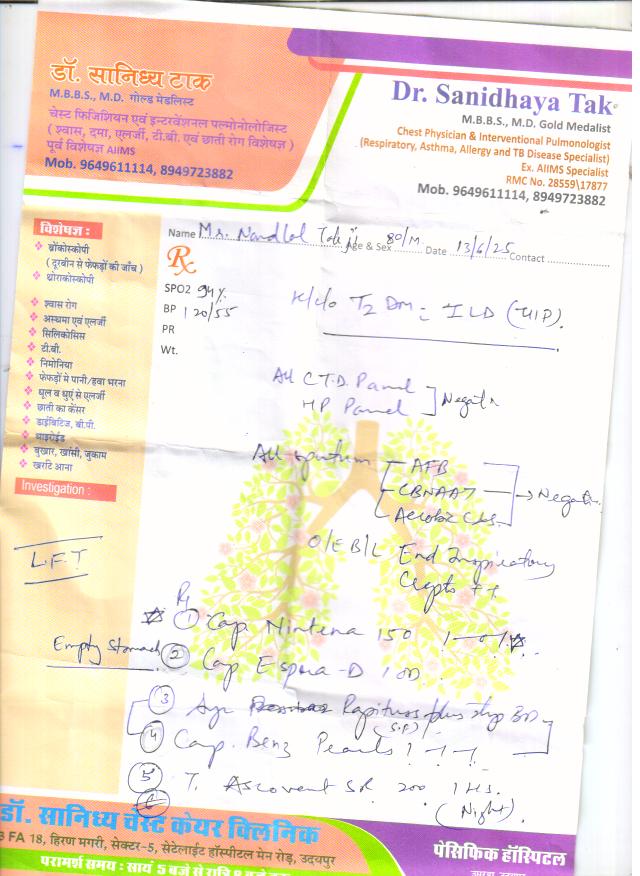 डॉ. सानिध्य टाक
M.B.B.S., M.D. गोल्ड मेडलिस्ट
चेस्ट फिजिशियन एवं इन्टरवेंशनल पल्मोनोलोजिस्ट
( श्वास, दमा, एलर्जी, टी.बी. एवं छाती रोग विशेषज्ञ )
पूर्व विशेषज्ञ AIIMS
Mob. 9649611114, 8949723882
Dr. Sanidhaya Tak
M.B.B.S., M.D. Gold Medalist
Chest Physician & Interventional Pulmonologist
(Respiratory, Asthma, Allergy and TB Disease Specialist)
Ex. AIIMS Specialist
RMC No. 28559\17877
Mob. 9649611114, 8949723882
Name Mr. Nandlal Age & Sex 80/M Date 13/6/25 Contact
Rx
SPO2 94%
BP 120/55
PR
Wt.
K/c/o T2 DM ILD (UIP).
All C.T.D. Panel
HP Panel
Negati
All sputum AFB
CBNAAT
Aerobic C/s
Negati
O/E B/L End Inspiratory
Crepts ++
विशेषज्ञ :
ब्रोंकोस्कोपी
( दूरबीन से फेफड़ों की जाँच )
थोराकोस्कोपी
श्वास रोग
अस्थमा एवं एलर्जी
सिलिकोसिस
टी.बी.
निमोनिया
फेफड़ों मे पानी/हवा भरना
धूल व धुएं से एलर्जी
छाती का कैंसर
डाईबिटिज, बी.पी.
थाइरोईड
बुखार, खांसी, जुकाम
खरटि आना
Investigation :
L.F.T
Rx
1 Cap Nintena 150 1-0-1
Empty Stomach 2 Cap Espra-D 1 OD
3 Syr Rapitus plus BD
(S.F)
4 Cap. Benz Pearls 1-1-1
5 T. Ascovent SR 200 1 HS.
(Night).
6
डॉ. सानिध्य चेस्ट केयर क्लिनिक
3 FA 18, हिरण मगरी, सेक्टर-5, सेटेलाईट हॉस्पीटल मेन रोड़, उदयपुर
परामर्श समय : सायं 5 बजे से रात्रि 8 बजे
पेसिफिक हॉस्पिटल